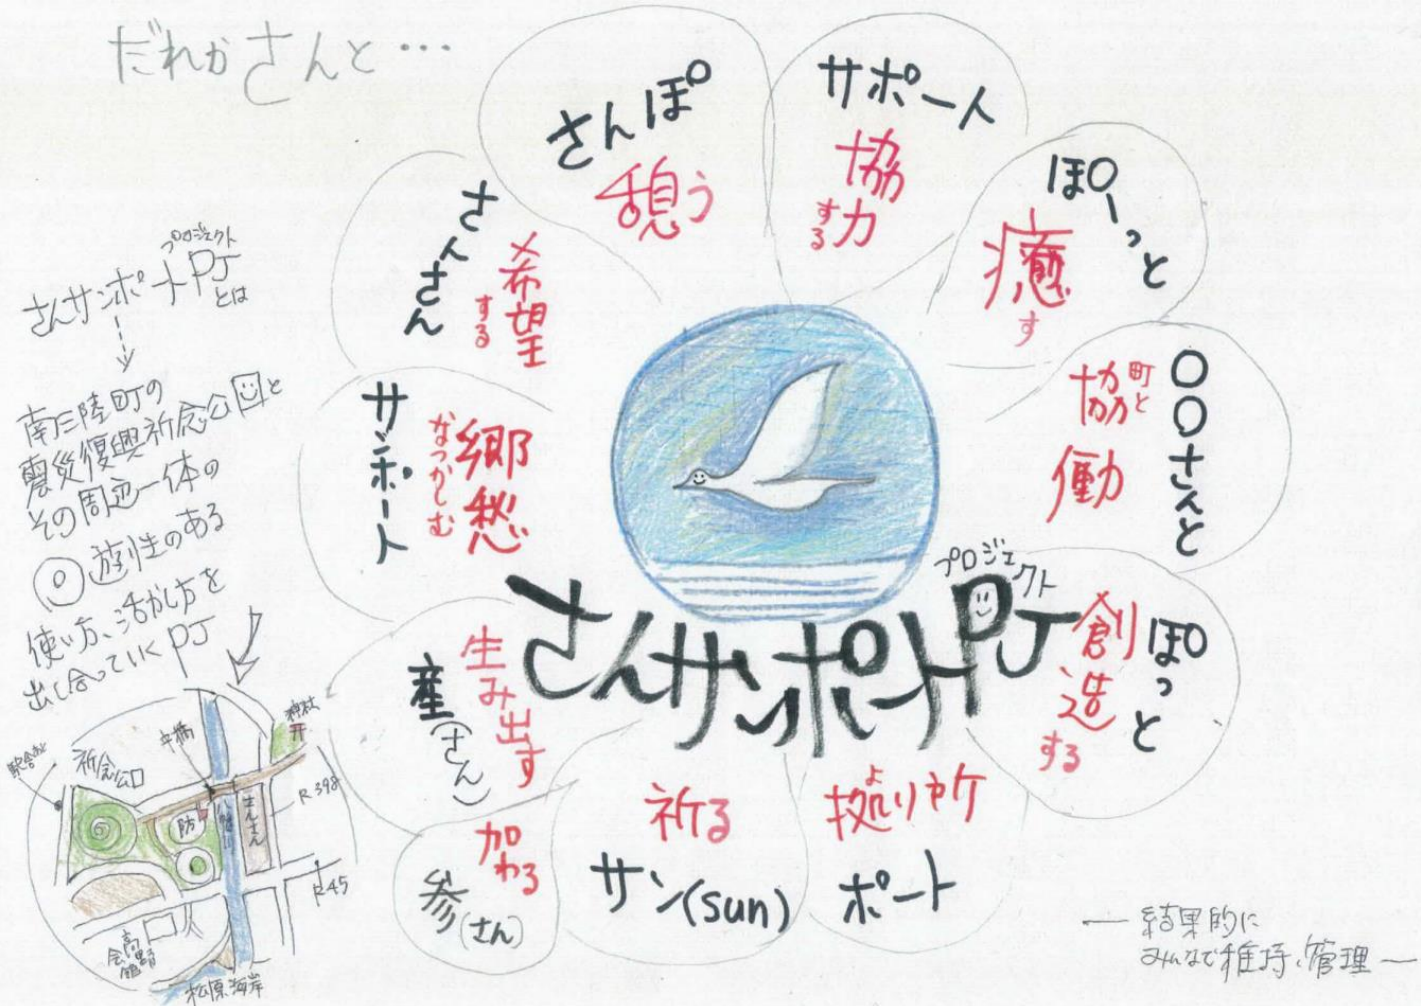 だれかさんと…
さんぽ
憩う
サポート
協力
する
ぽーっと
癒す
〇〇さんと
町と
協働
ぽっと
創造
する
拠り所
よ
ポート
祈る
サン(sun)
加わる
参(さん)
生み出す
産(さん)
郷愁
なつかしむ
サンポート
希望
する
さんさん
プロジェクト
さんサンポートPJ
プロジェクト
さんサンポートPJ
とは
南三陸町の
震災復興祈念公園と
その周辺一体の
遊び性のある
使い方、活かし方を
出し合っていくPJ
祈念公園
中橋
神社
防
八幡川
さんさん
R398
R45
高野
会館
松原海岸
結果的に
みんなで維持、管理